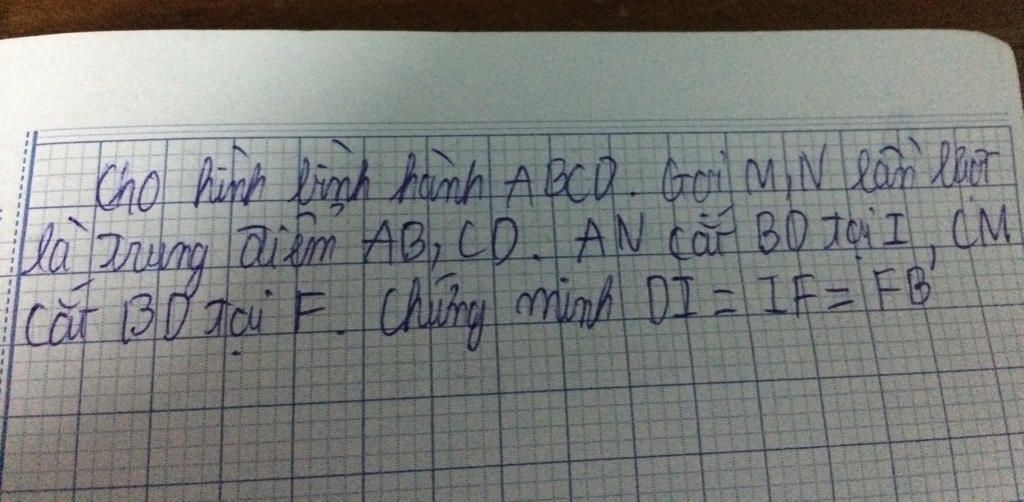 Cho hình bình hành ABCD. Gọi M, N lần lượt
là trung điểm AB, CD. AN cắt BD tại I, CM
cắt BD tại F. Chứng minh DI = IF = FB